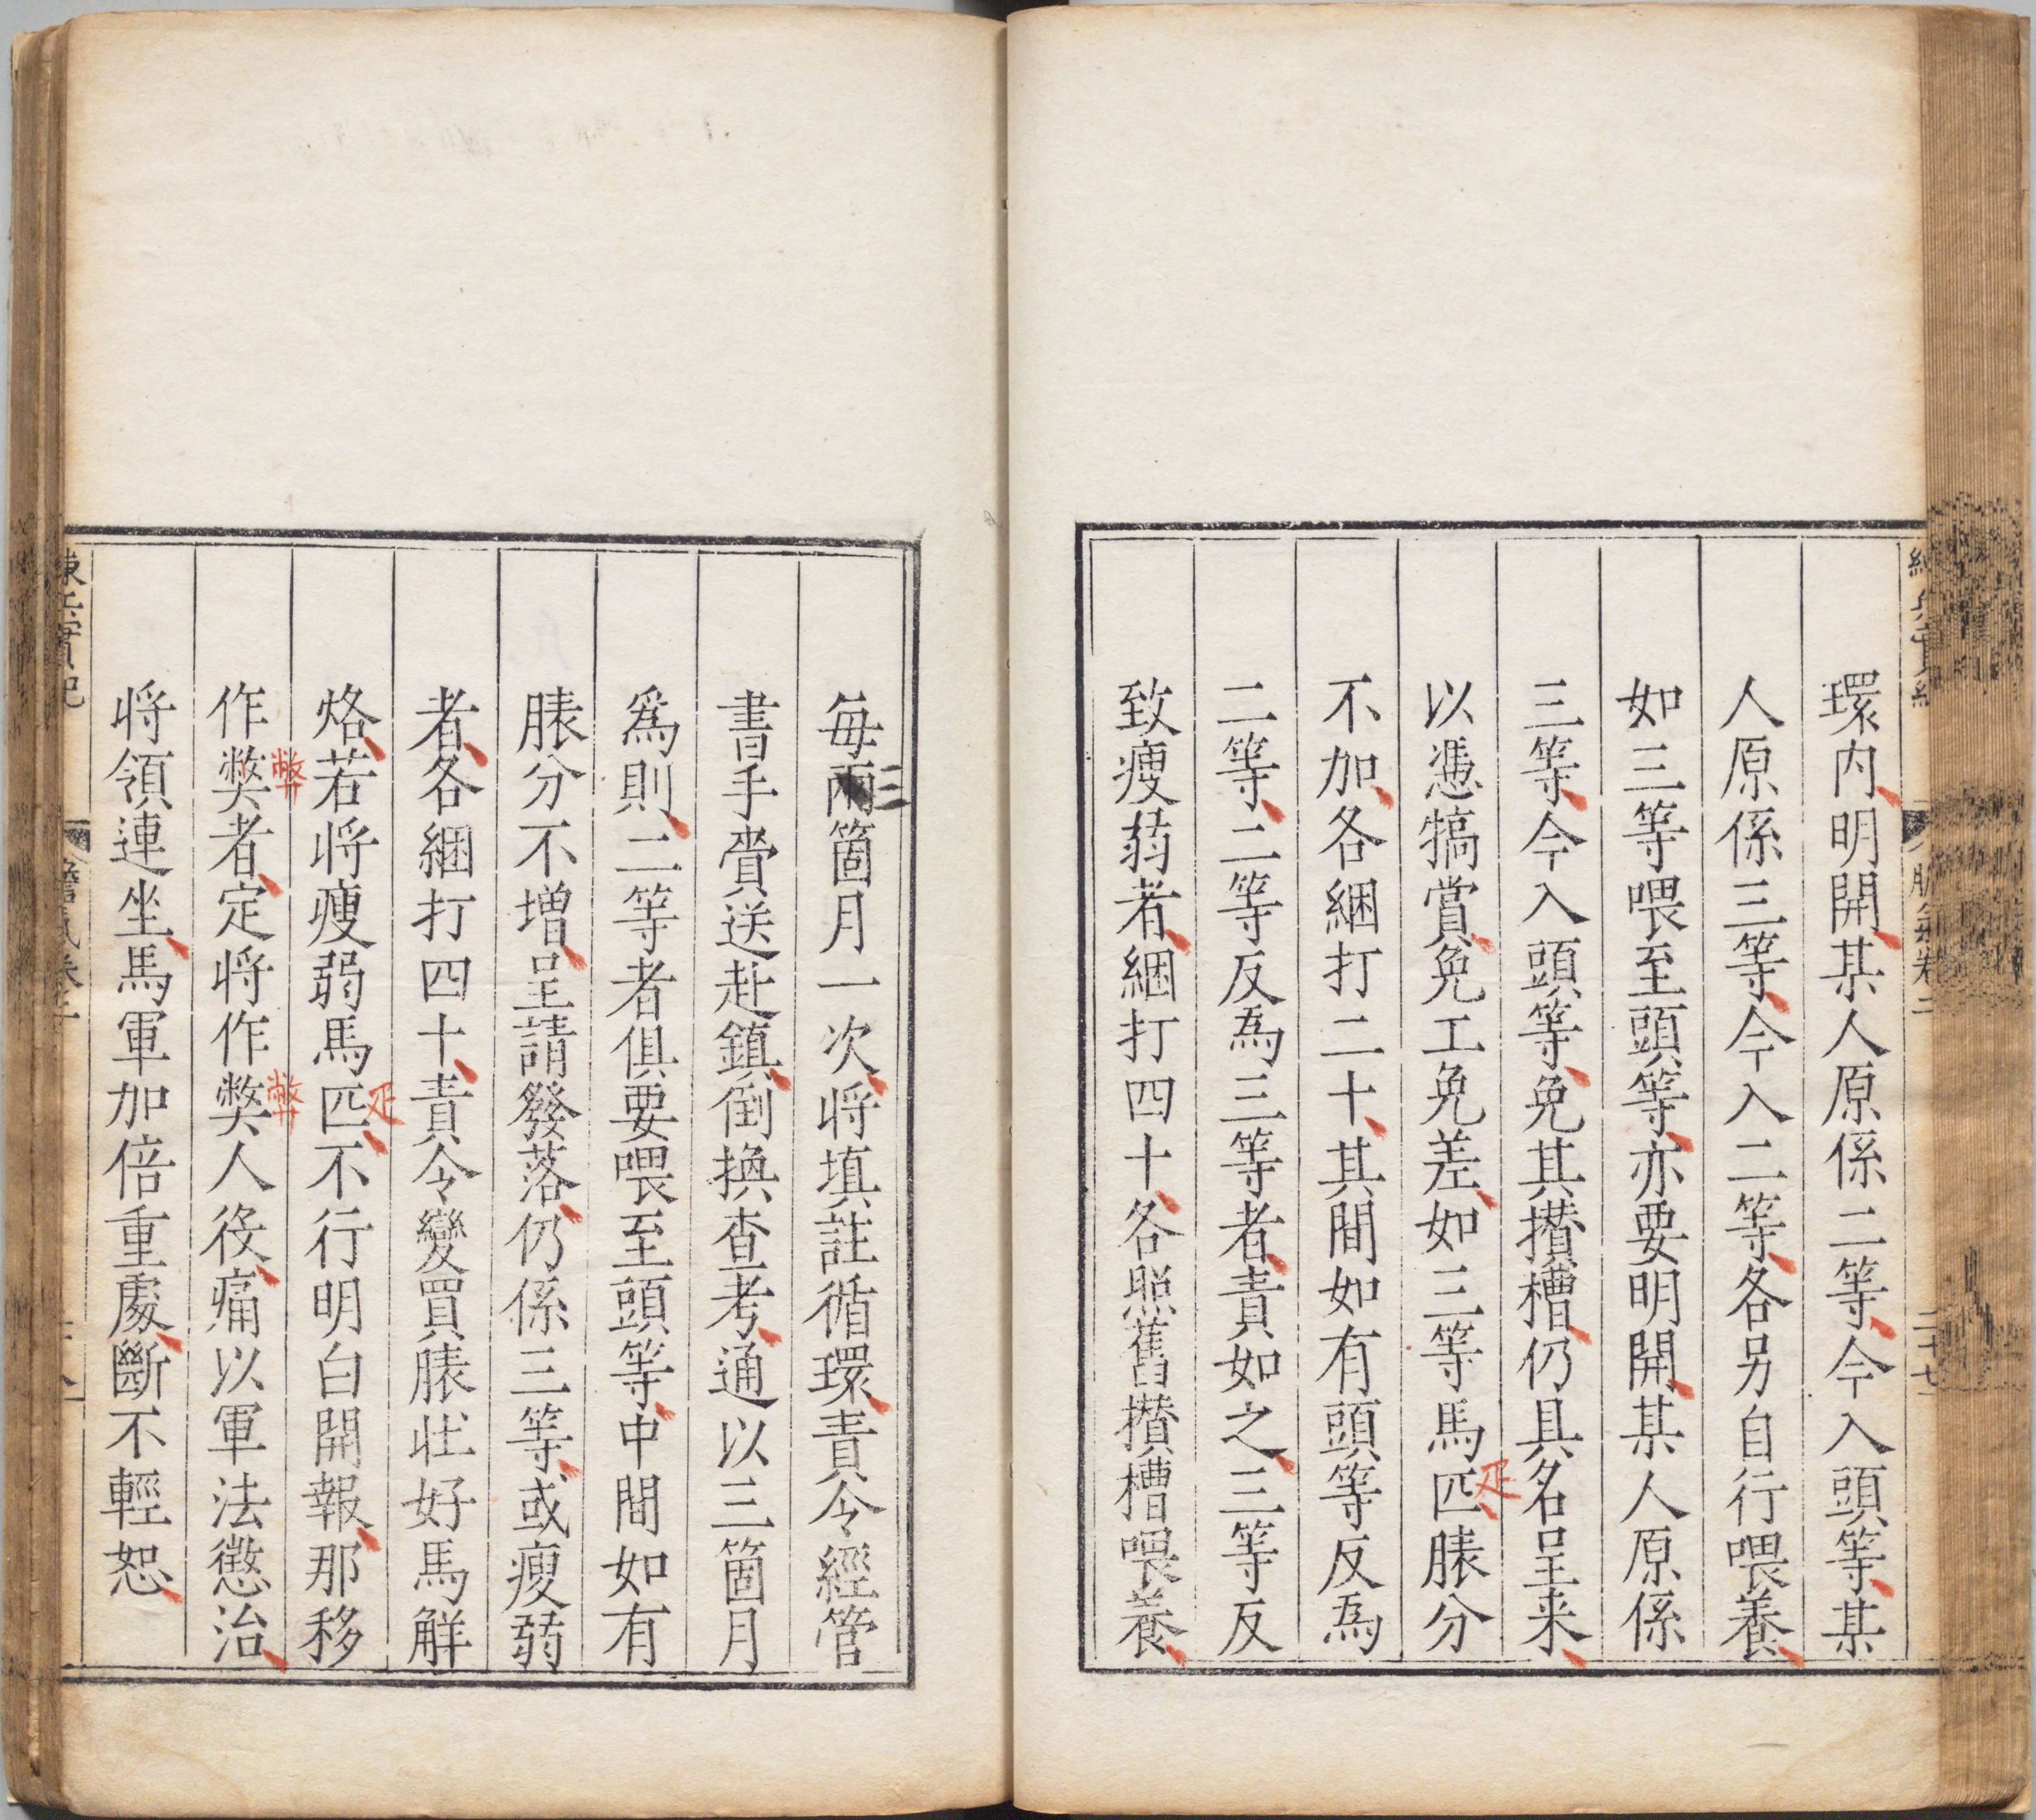 環内明開某人原係二等今入頭等某
人原係三等今入二等各另自行喂養
如三等喂至頭等亦要明開某人原係
三等今入頭等免其攢槽仍具名呈来
以憑犒賞免工免差如三等馬匹膘分
不加各綑打二十其間如有頭等反爲
二等二等反爲三等者責如之三等反
致瘦弱者綑打四十各照舊攢槽喂養
每兩箇月一次将填註循環責令經管
三
書手賫送赴鎮倒換查考通以三箇月
爲則二等者俱要喂至頭等中間如有
膘分不增呈請發落仍係三等或瘦弱
者各綑打四十責令變買膘壮好馬觧
烙若将瘦弱馬匹不行明白開報那移
作獘者定将作獘人役痛以軍法懲治
将領連坐馬軍加倍重處斷不輕恕
疋
疋
弊
弊